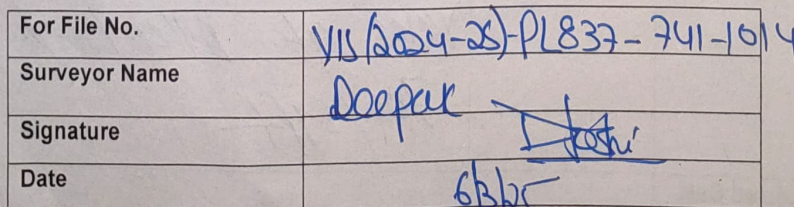 For File No. VIS(2024-25)-PL837-741-1014
Surveyor Name Deepak
Signature DJoshi
Date 6/3/25